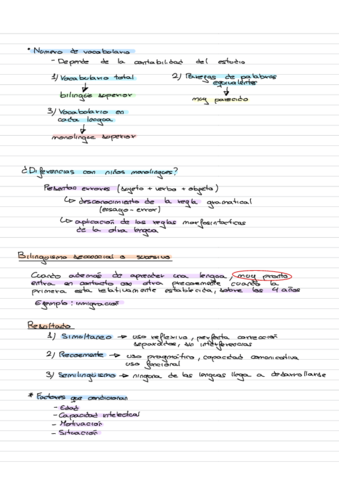 * Número de vocabulario
- Depende de la contabilidad del estudio
1) Vocabulario total
2) Parejas de palabras equivalentes
bilingüe superior
muy parecido
3) Vocabulario en cada lengua
monolingüe superior
¿Diferencias con niños monolingües?
Presentan errores (sujeto + verbo + objeto)
↳ desconocimiento de la regla gramatical
(ensayo - error)
↳ aplicación de las reglas morfosintácticas
de la otra lengua
Bilingüismo secuencial o sucesivo
Cuando además de aprender una lengua, muy pronto
entra en contacto con otra precozmente cuando la
primera está relativamente establecida, sobre los 4 años
Ejemplo: inmigración
Resultado
1) Simultáneo → uso reflexivo, perfecta corrección
separarlos, sin interferencias
2) Precozmente → uso pragmático, capacidad comunicativa
uso funcional
3) Semilingüismo → ninguna de las lenguas llega a desarrollarse
* Factores que condicionan
- Edad
- Capacidad intelectual
- Motivación
- Situación